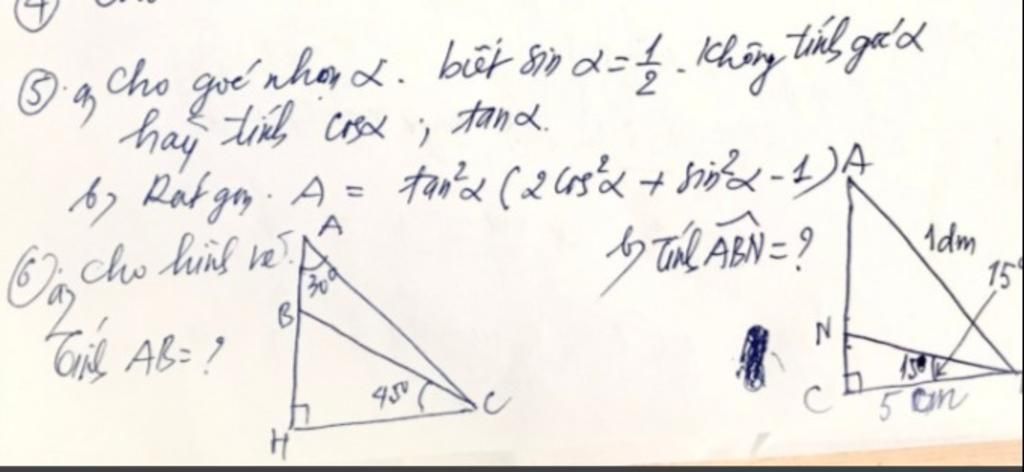 ⑤ a, Cho góc nhọn α. biết sin α = 1/2. Không tính góc α
hãy tính cosα ; tanα.
b, Rút gọn. A = tan²α (2cos²α + sin²α - 1)
⑥ a, Cho hình vẽ.
Tính AB = ?
A
30°
B
45°
C
H
b, Tính ABN = ?
A
1dm
15°
N
15°
C
5 cm